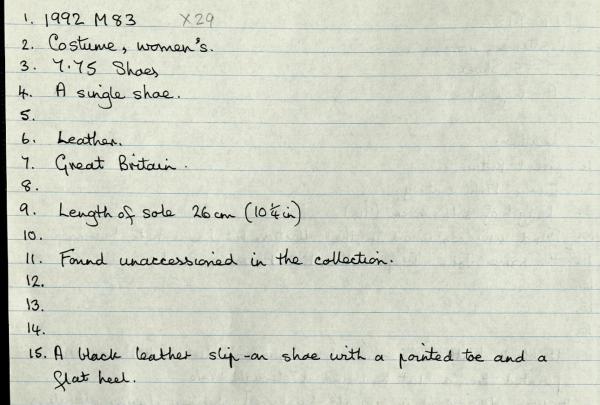 1. 1992 M83 X29
2. Costume, women's.
3. 7.75 Shoes
4. A single shoe.
5.
6. Leather.
7. Great Britain.
8.
9. Length of sole 26cm (10¼in)
10.
11. Found unaccessioned in the collection.
12.
13.
14.
15. A black leather slip-on shoe with a pointed toe and a
flat heel.